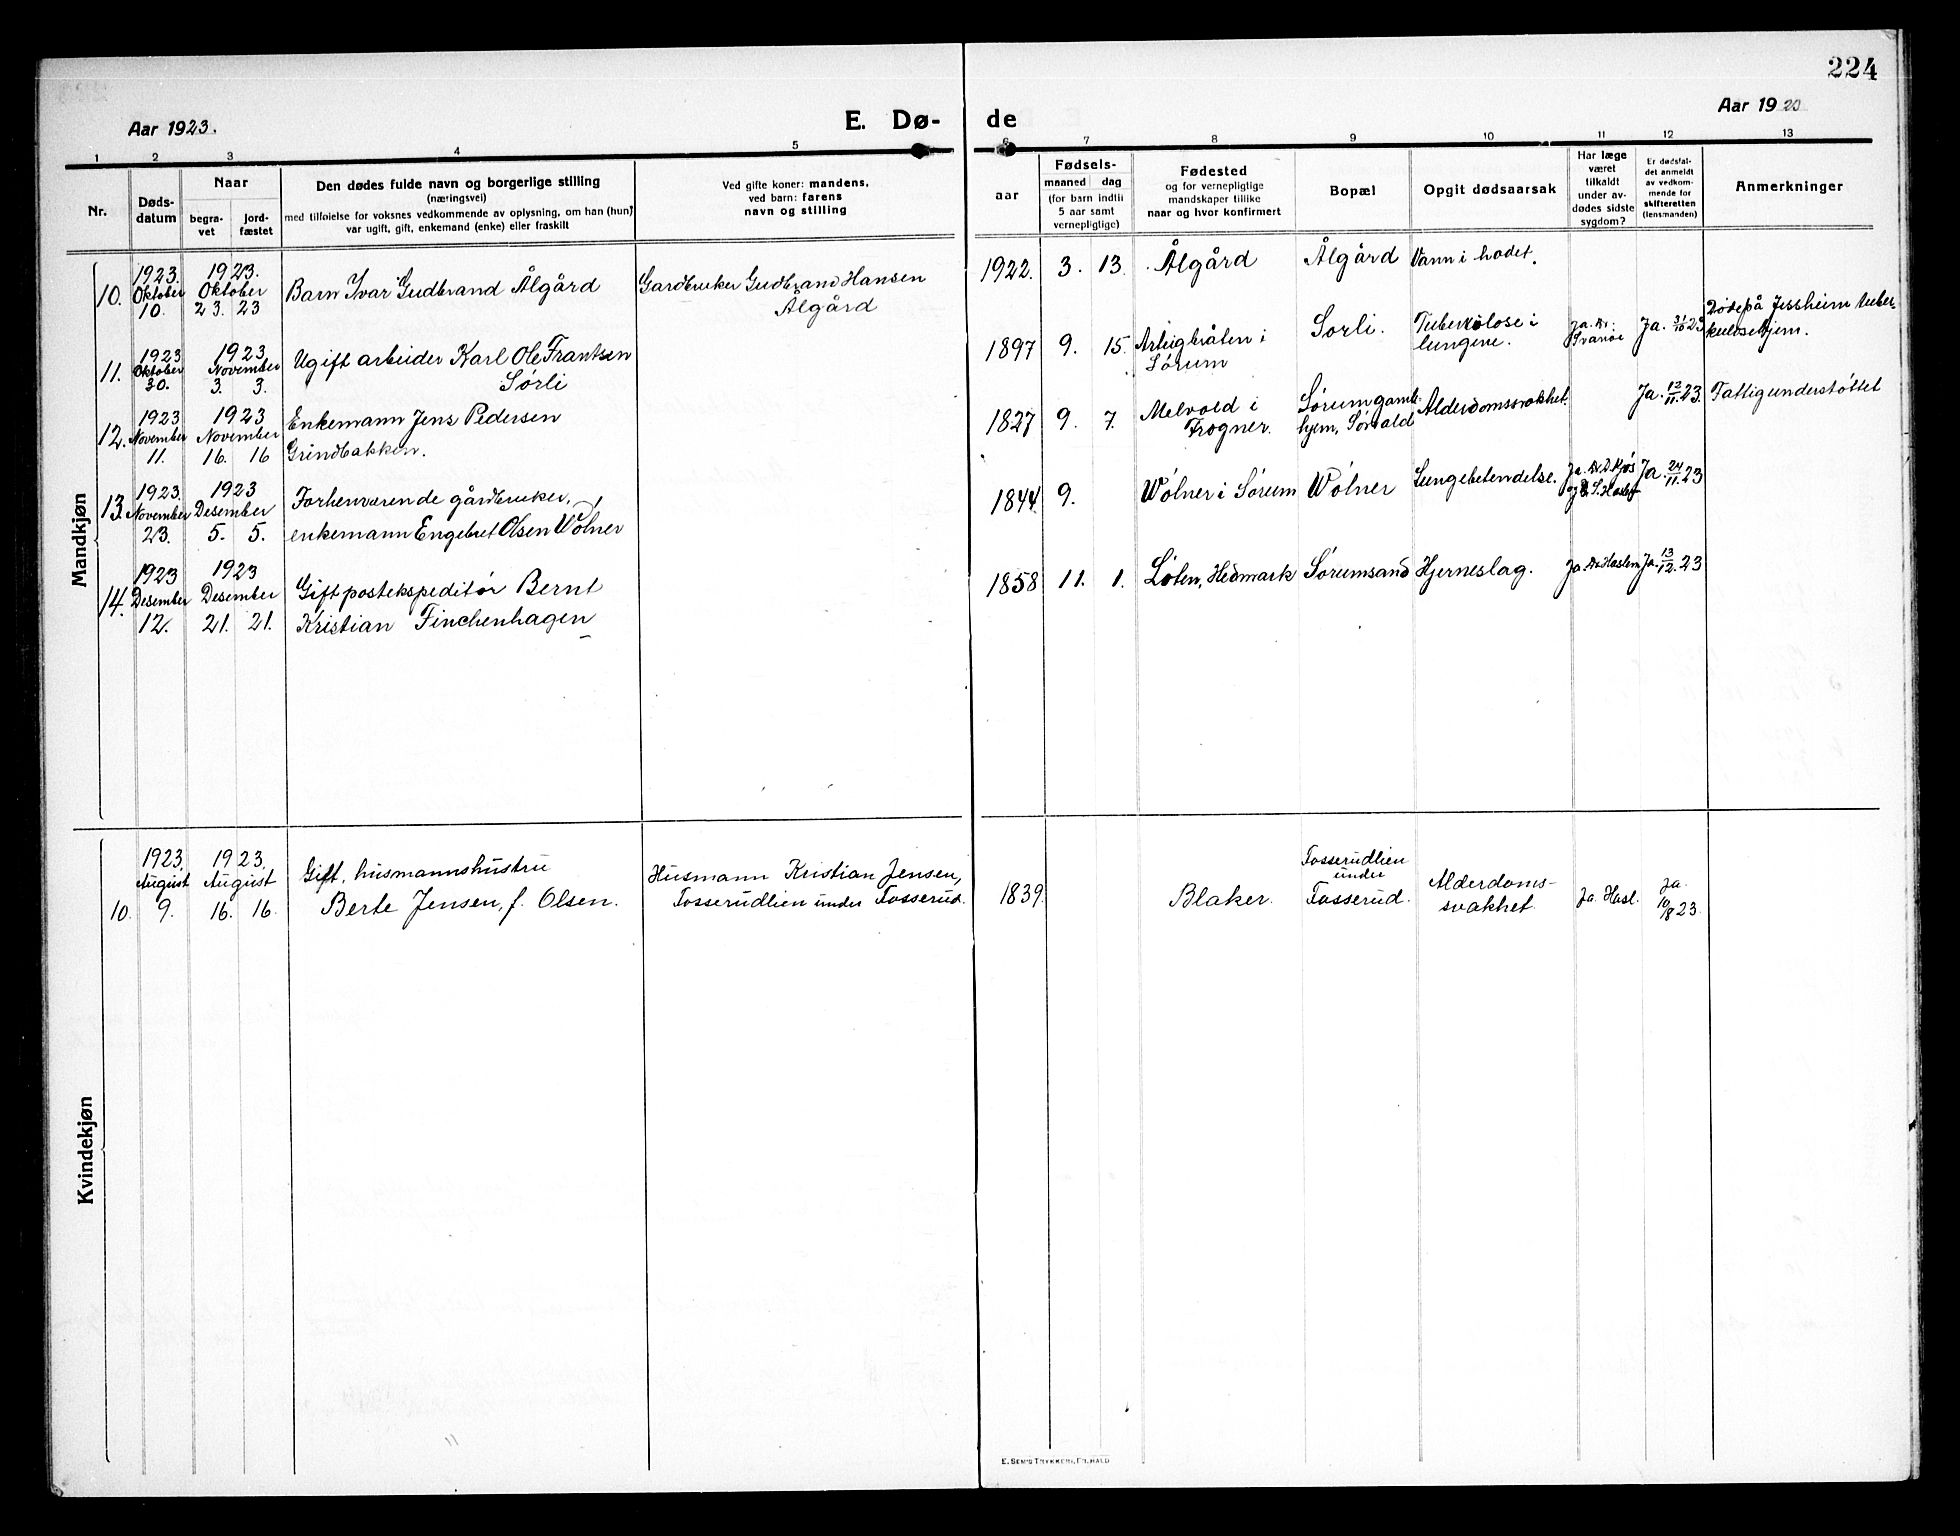 224
Aar 1923.
E. Dø-
de
Aar 19 23
1 2 3 4 5 6 7 8 9 10 11 12 13
Nr.
Døds-
datum
Naar
begra-
vet
jord-
fæstet
Den dødes fulde navn og borgerlige stilling
(næringsvei)
med tilføielse for voksnes vedkommende av oplysning, om han (hun)
var ugift, gift, enkemand (enke) eller fraskilt
Ved gifte koner: mandens,
ved barn: farens
navn og stilling
aar
Fødsels-
maaned dag
(for barn indtil
5 aar samt
vernepligtige)
Fødested
og for vernepligtige
mandskaper tillike
naar og hvor konfirmert
Bopæl
Opgit dødsaarsak
Har læge
været
tilkaldt
under av-
dødes sidste
sygdom?
Er dødsfal-
det anmeldt
av vedkom-
mende for
skifteretten
(lensmanden)
Anmerkninger
Mandkjøn
10.
1923.
Oktober
10.
1923.
Oktober
23. 23
Barn Ivar Gudbrand Ålgård
Gardbruker Gudbrand Hansen
Ålgård
1922. 3. 13.
Ålgård
Ålgård
Vann i hodet.
11.
1923
Oktober
30.
1923
November
3. 3.
Ugift arbeider Karl Ole Frantsen
Sørli
1897 9. 15.
i
Sørum
Sørli.
Tuberkulose i
lungene.
Ja. Dr.
Svanøe
Ja. 31/10 23
Døde på Jessheim tuber-
kulosehjem.
12.
1923
November
11.
1923
November
16. 16
Enkemann Jens Pedersen
Grindbakken.
1827 9. 7.
Melvold i
Frogner.
Sørum gamle-
hjem, Sørvald
Alderdomssvakhet.
Ja. 12/11. 23.
Fattigunderstøttet
13.
1923.
November
23.
1923
Desember
5. 5.
Forhenværende gårdbruker,
enkemann Engebret Olsen Wølner
1844 9.
Wølner i Sørum
Wølner
Lungebetendelse.
Ja.
Ja. 24/11. 23
14.
1923
Desember
12.
1923
Desember
21. 21.
Gift postekspeditør Bernt
Kristian Finchenhagen
1858 11. 1.
Løten, Hedmark
Sørumsand
Hjerneslag.
Ja. Dr Haslem
Ja. 13/12. 23
Kvindekjøn
10.
1923
August
9.
1923.
August
16. 16.
Gift, husmannshustru
Berte Jensen, f. Olsen.
Husmann Kristian Jensen,
Fosserudlien under Fosserud.
1839.
Blaker.
Fosserudlien
under
Fosserud.
Alderdoms-
svakhet.
Ja. Hasl.
Ja.
10/8 23.
E. SEM'S TRYKKERI, FR.HALD